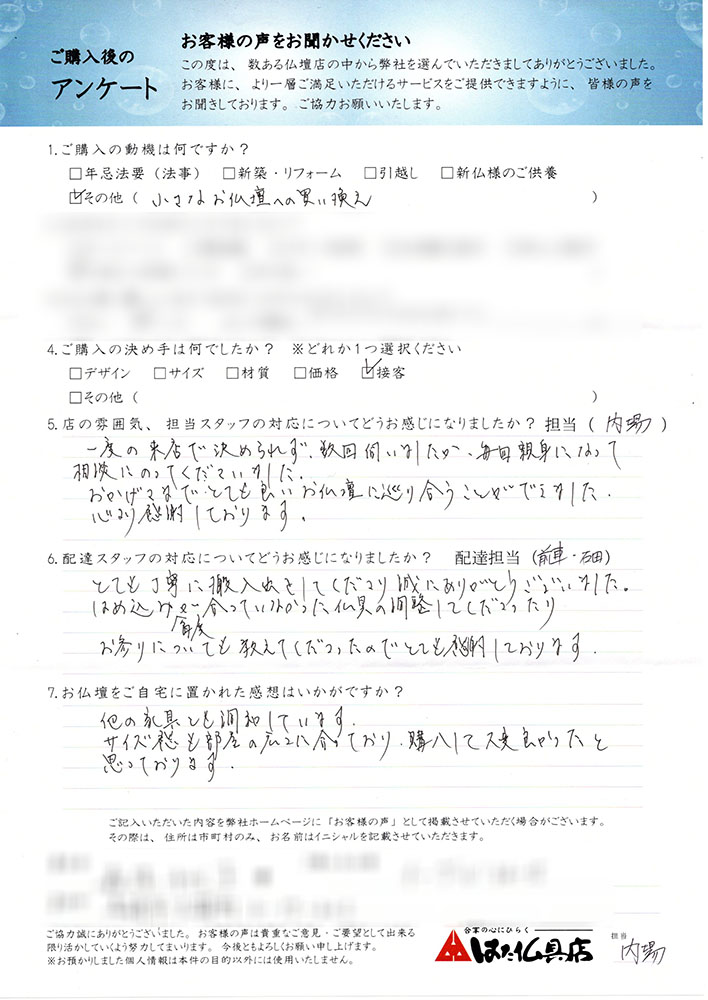 ご購入後の
アンケート
お客様の声をお聞かせください
この度は、数ある仏壇店の中から弊社を選んでいただきましてありがとうございました。
お客様に、より一層ご満足いただけるサービスをご提供できますように、皆様の声を
お聞きしております。ご協力お願いいたします。
1.ご購入の動機は何ですか？
□年忌法要（法事） □新築・リフォーム □引越し □新仏様のご供養
☑その他（ 小さなお仏壇への買い換え ）
4.ご購入の決め手は何でしたか？ ※どれか1つ選択ください
□デザイン □サイズ □材質 □価格 ☑接客
□その他（ ）
5.店の雰囲気、担当スタッフの対応についてどうお感じになりましたか？担当（ 内場 ）
一度の来店で決められず、数回伺いましたが、毎回親身になって
相談にのってくださいました。
おかげさまで、とても良いお仏壇に巡り合うことができました。
心より感謝しております。
6.配達スタッフの対応についてどうお感じになりましたか？ 配達担当（前車・石田）
とても丁寧に搬入出をしてくださり誠にありがとうございました。
はめ込みが合っていなかった仏具の調整してくださったり
お参りについても 教えてくださったのでとても感謝しております。
7.お仏壇をご自宅に置かれた感想はいかがですか？
他の家具とも調和しています。
サイズ感も部屋の広さに合っており、購入して大変良かったと
思っております。
ご記入いただいた内容を弊社ホームページに「お客様の声」として掲載させていただく場合がございます。
その際は、住所は市町村のみ、お名前はイニシャルを記載させていただきます。
ご協力誠にありがとうございました。お客様の声は貴重なご意見・ご要望として出来る
限り活かしていくよう努力してまいります。今後ともよろしくお願い申し上げます。
※お預かりしました個人情報は本件の目的以外には使用いたしません。
合掌の心にひらく
はた仏具店
担当
内場